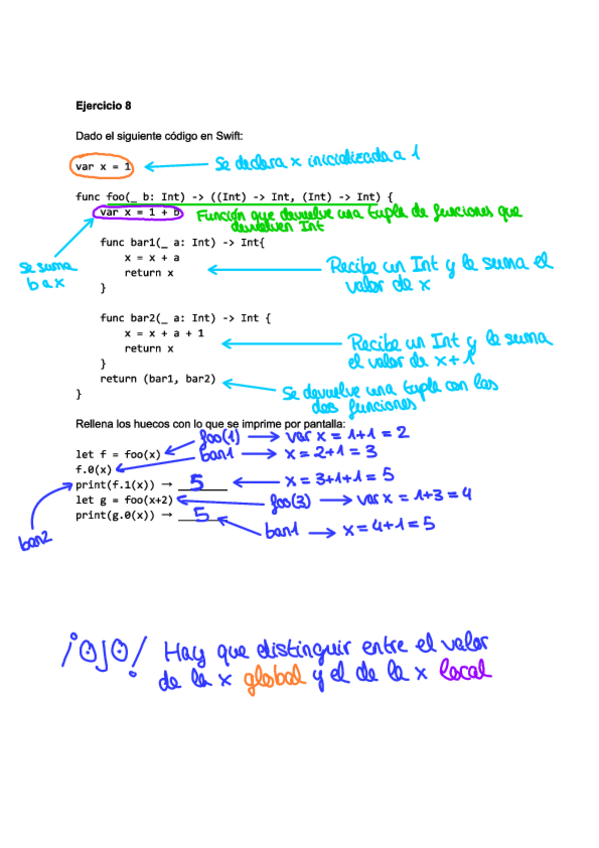 Ejercicio 8
Dado el siguiente código en Swift:
var x = 1
Se declara x inicializada a 1
func foo(_ b: Int) -> ((Int) -> Int, (Int) -> Int) {
var x = 1 + b
Función que devuelve una tupla de funciones que
devuelven Int
func bar1(_ a: Int) -> Int{
x = x + a
return x
}
Se suma
b a x
Recibe un Int y le suma el
valor de x
func bar2(_ a: Int) -> Int {
x = x + a + 1
return x
}
Recibe un Int y le suma
el valor de x+1
return (bar1, bar2)
}
Se devuelve una tupla con las
dos funciones
Rellena los huecos con lo que se imprime por pantalla:
foo(1) → var x = 1+1 = 2
let f = foo(x)
bar1 → x = 2+1 = 3
f.0(x)
print(f.1(x)) → 5
x = 3+1+1 = 5
let g = foo(x+2)
foo(3) → var x = 1+3 = 4
print(g.0(x)) → 5
bar1 → x = 4+1 = 5
bar2
¡OJO! Hay que distinguir entre el valor
de la x global y el de la x local